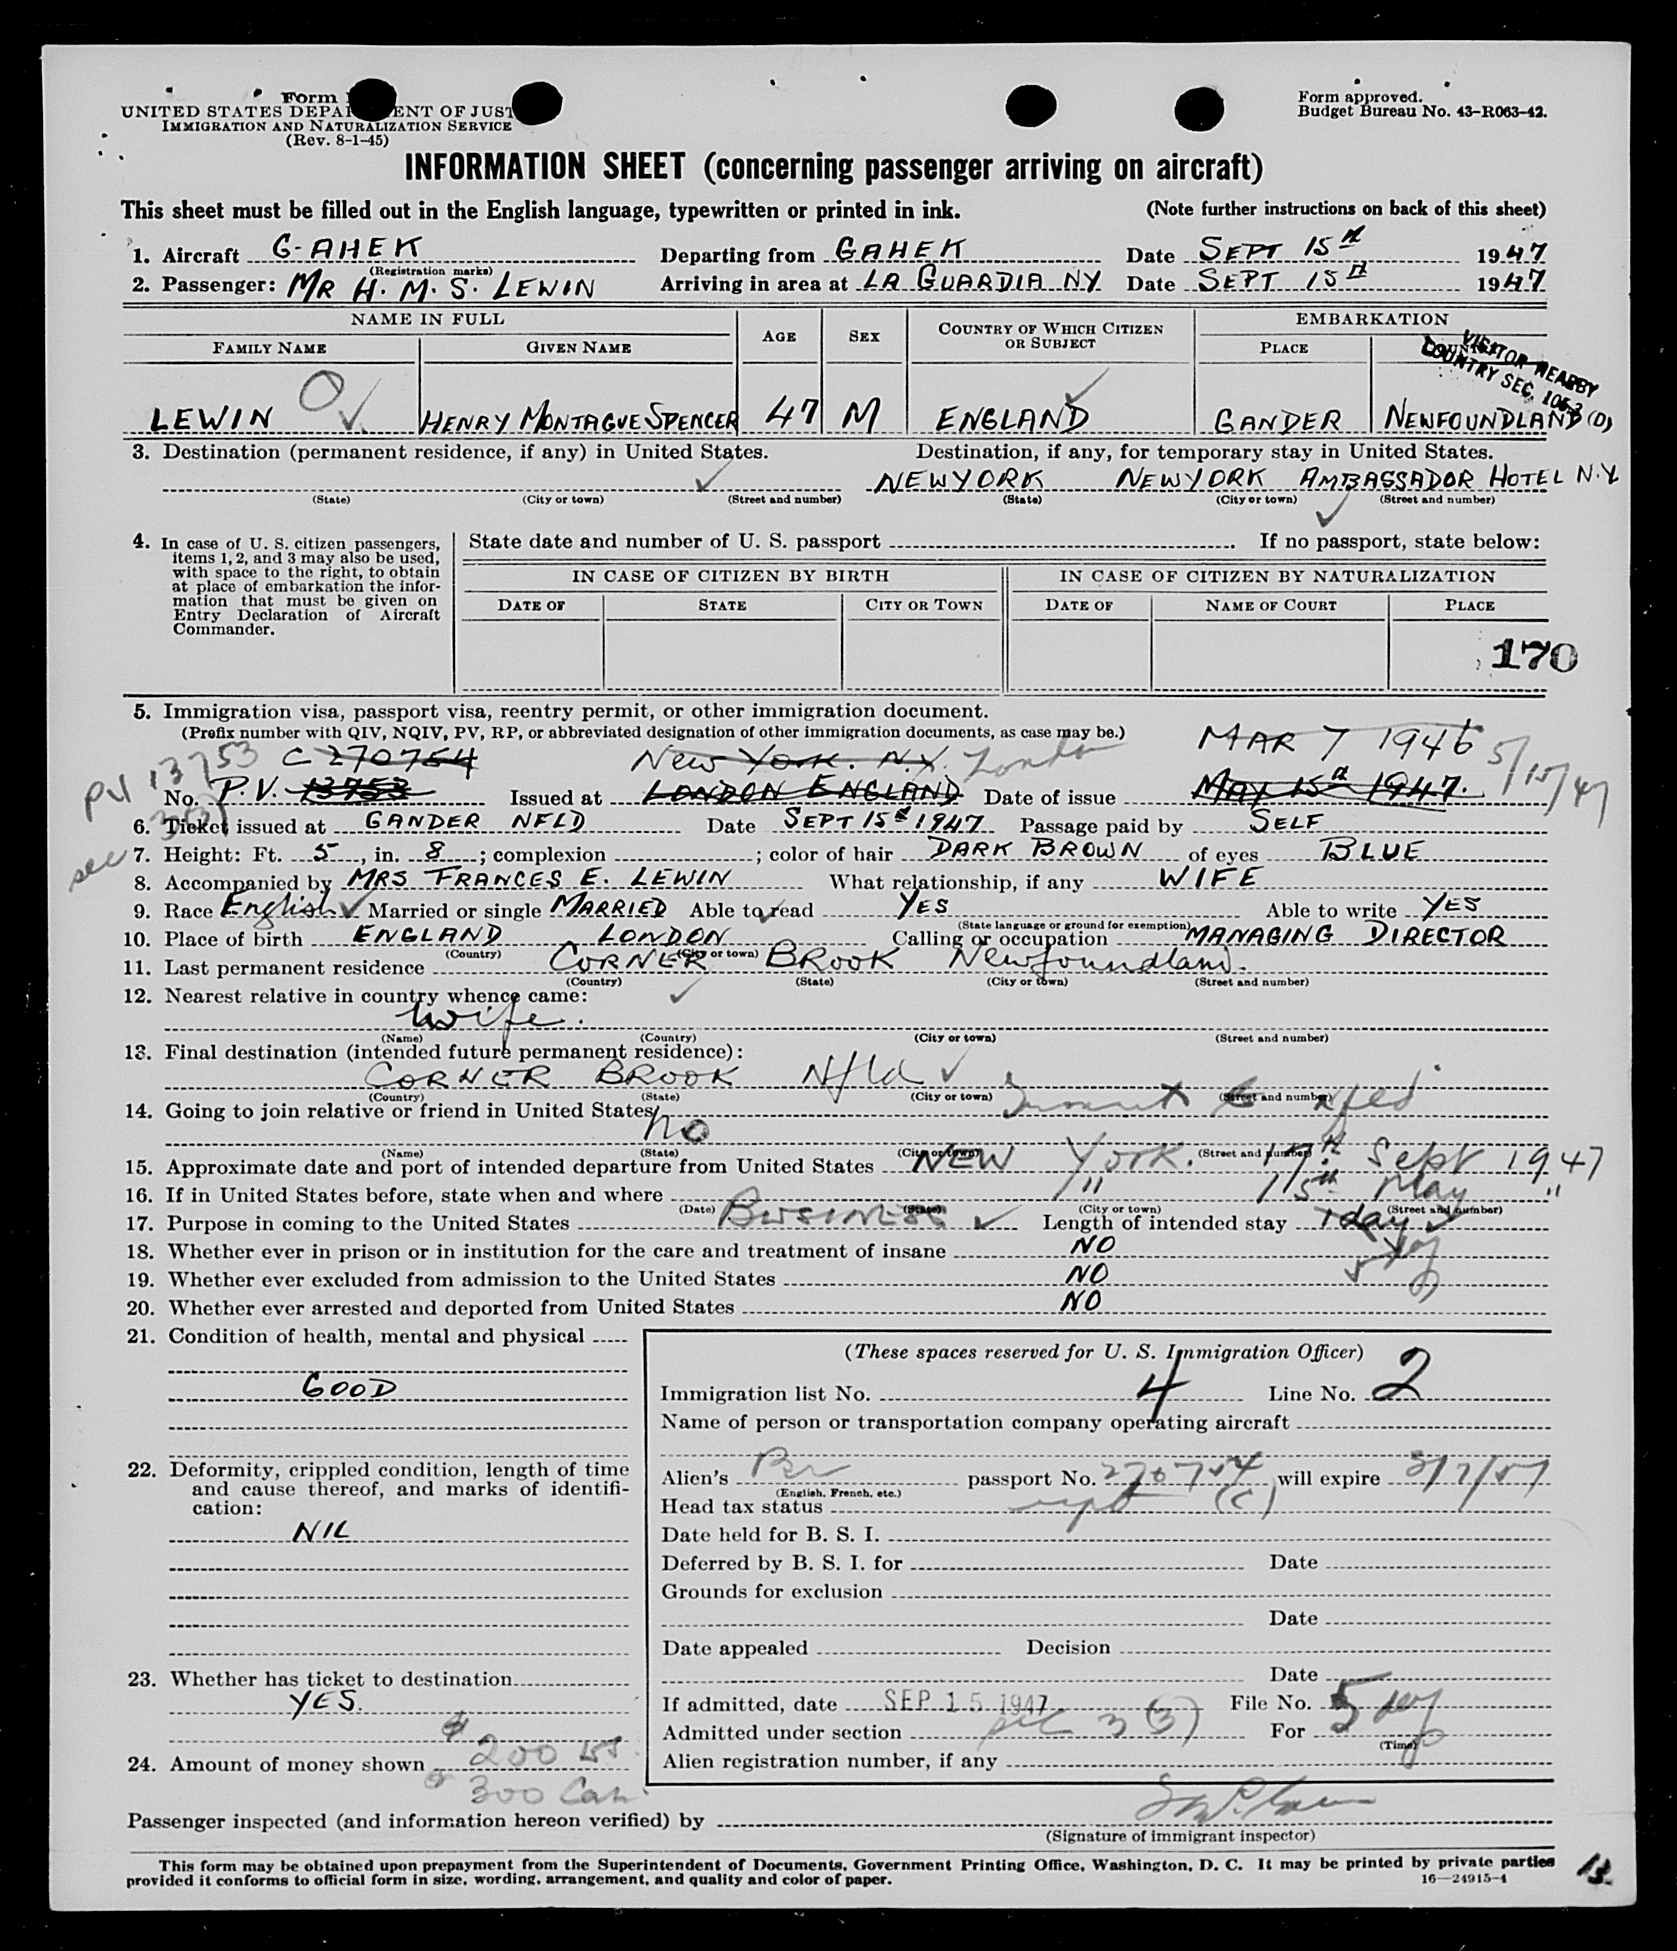 Form
UNITED STATES DEPARTMENT OF JUST
IMMIGRATION AND NATURALIZATION SERVICE
(Rev. 8-1-45)
Form approved.
Budget Bureau No. 43-R063-42.
INFORMATION SHEET (concerning passenger arriving on aircraft)
This sheet must be filled out in the English language, typewritten or printed in ink. (Note further instructions on back of this sheet)
1. Aircraft G-AHEK Departing from GAHEK Date SEPT 15th 1947
(Registration marks)
2. Passenger: MR H. M. S. LEWIN Arriving in area at LA GUARDIA NY Date SEPT 15th 1947
NAME IN FULL AGE SEX COUNTRY OF WHICH CITIZEN OR SUBJECT EMBARKATION
FAMILY NAME GIVEN NAME PLACE COUNTRY
VISITOR NEARBY
COUNTRY SEC. 105.3 (D)
LEWIN HENRY MONTAGUE SPENCER 47 M ENGLAND GANDER NEWFOUNDLAND
3. Destination (permanent residence, if any) in United States. Destination, if any, for temporary stay in United States.
NEW YORK NEW YORK AMBASSADOR HOTEL N.Y.
(State) (City or town) (Street and number) (State) (City or town) (Street and number)
4. In case of U. S. citizen passengers,
items 1, 2, and 3 may also be used,
with space to the right, to obtain
at place of embarkation the infor-
mation that must be given on
Entry Declaration of Aircraft
Commander.
State date and number of U. S. passport If no passport, state below:
IN CASE OF CITIZEN BY BIRTH IN CASE OF CITIZEN BY NATURALIZATION
DATE OF STATE CITY OR TOWN DATE OF NAME OF COURT PLACE
170
5. Immigration visa, passport visa, reentry permit, or other immigration document.
(Prefix number with QIV, NQIV, PV, RP, or abbreviated designation of other immigration documents, as case may be.)
PV 13753 C 270754 New York. N.Y. London MAR 7 1946 5/15/47
No. P.V. 13753 Issued at LONDON ENGLAND Date of issue MAY 15th 1947.
sec 3(3)
6. Ticket issued at GANDER NFLD Date SEPT 15th 1947 Passage paid by SELF
7. Height: Ft. 5, in. 8; complexion ; color of hair DARK BROWN of eyes BLUE
8. Accompanied by MRS FRANCES E. LEWIN What relationship, if any WIFE
9. Race English Married or single MARRIED Able to read YES Able to write YES
(State language or ground for exemption)
10. Place of birth ENGLAND LONDON Calling or occupation MANAGING DIRECTOR
(Country) (City or town)
11. Last permanent residence CORNER BROOK Newfoundland.
(Country) (State) (City or town) (Street and number)
12. Nearest relative in country whence came:
Wife.
(Name) (Country) (City or town) (Street and number)
13. Final destination (intended future permanent residence):
CORNER BROOK Nfld
(Country) (State) (City or town) (Street and number)
14. Going to join relative or friend in United States
No
(Name) (State) (City or town) (Street and number)
15. Approximate date and port of intended departure from United States NEW York. 17th Sept 1947
16. If in United States before, state when and where " " 15th May "
(Date) (State) (City or town) (Street and number)
17. Purpose in coming to the United States BUSINESS Length of intended stay 1 day
18. Whether ever in prison or in institution for the care and treatment of insane NO
19. Whether ever excluded from admission to the United States NO
20. Whether ever arrested and deported from United States NO
21. Condition of health, mental and physical
GOOD
22. Deformity, crippled condition, length of time
and cause thereof, and marks of identifi-
cation:
NIL
23. Whether has ticket to destination
YES.
24. Amount of money shown $200 US
$300 Can.
(These spaces reserved for U. S. Immigration Officer)
Immigration list No. 4 Line No. 2
Name of person or transportation company operating aircraft
Alien's Br passport No. 270754 will expire 3/7/57
(English, French, etc.)
(C)
Head tax status
Date held for B. S. I.
Deferred by B. S. I. for Date
Grounds for exclusion
Date
Date appealed Decision
Date
If admitted, date SEP 15 1947 File No.
Admitted under section sec 3(3) For 5 day
(Time)
Alien registration number, if any
Passenger inspected (and information hereon verified) by
(Signature of immigrant inspector)
This form may be obtained upon prepayment from the Superintendent of Documents, Government Printing Office, Washington, D. C. It may be printed by private parties
provided it conforms to official form in size, wording, arrangement, and quality and color of paper. 16—24915-1
13.